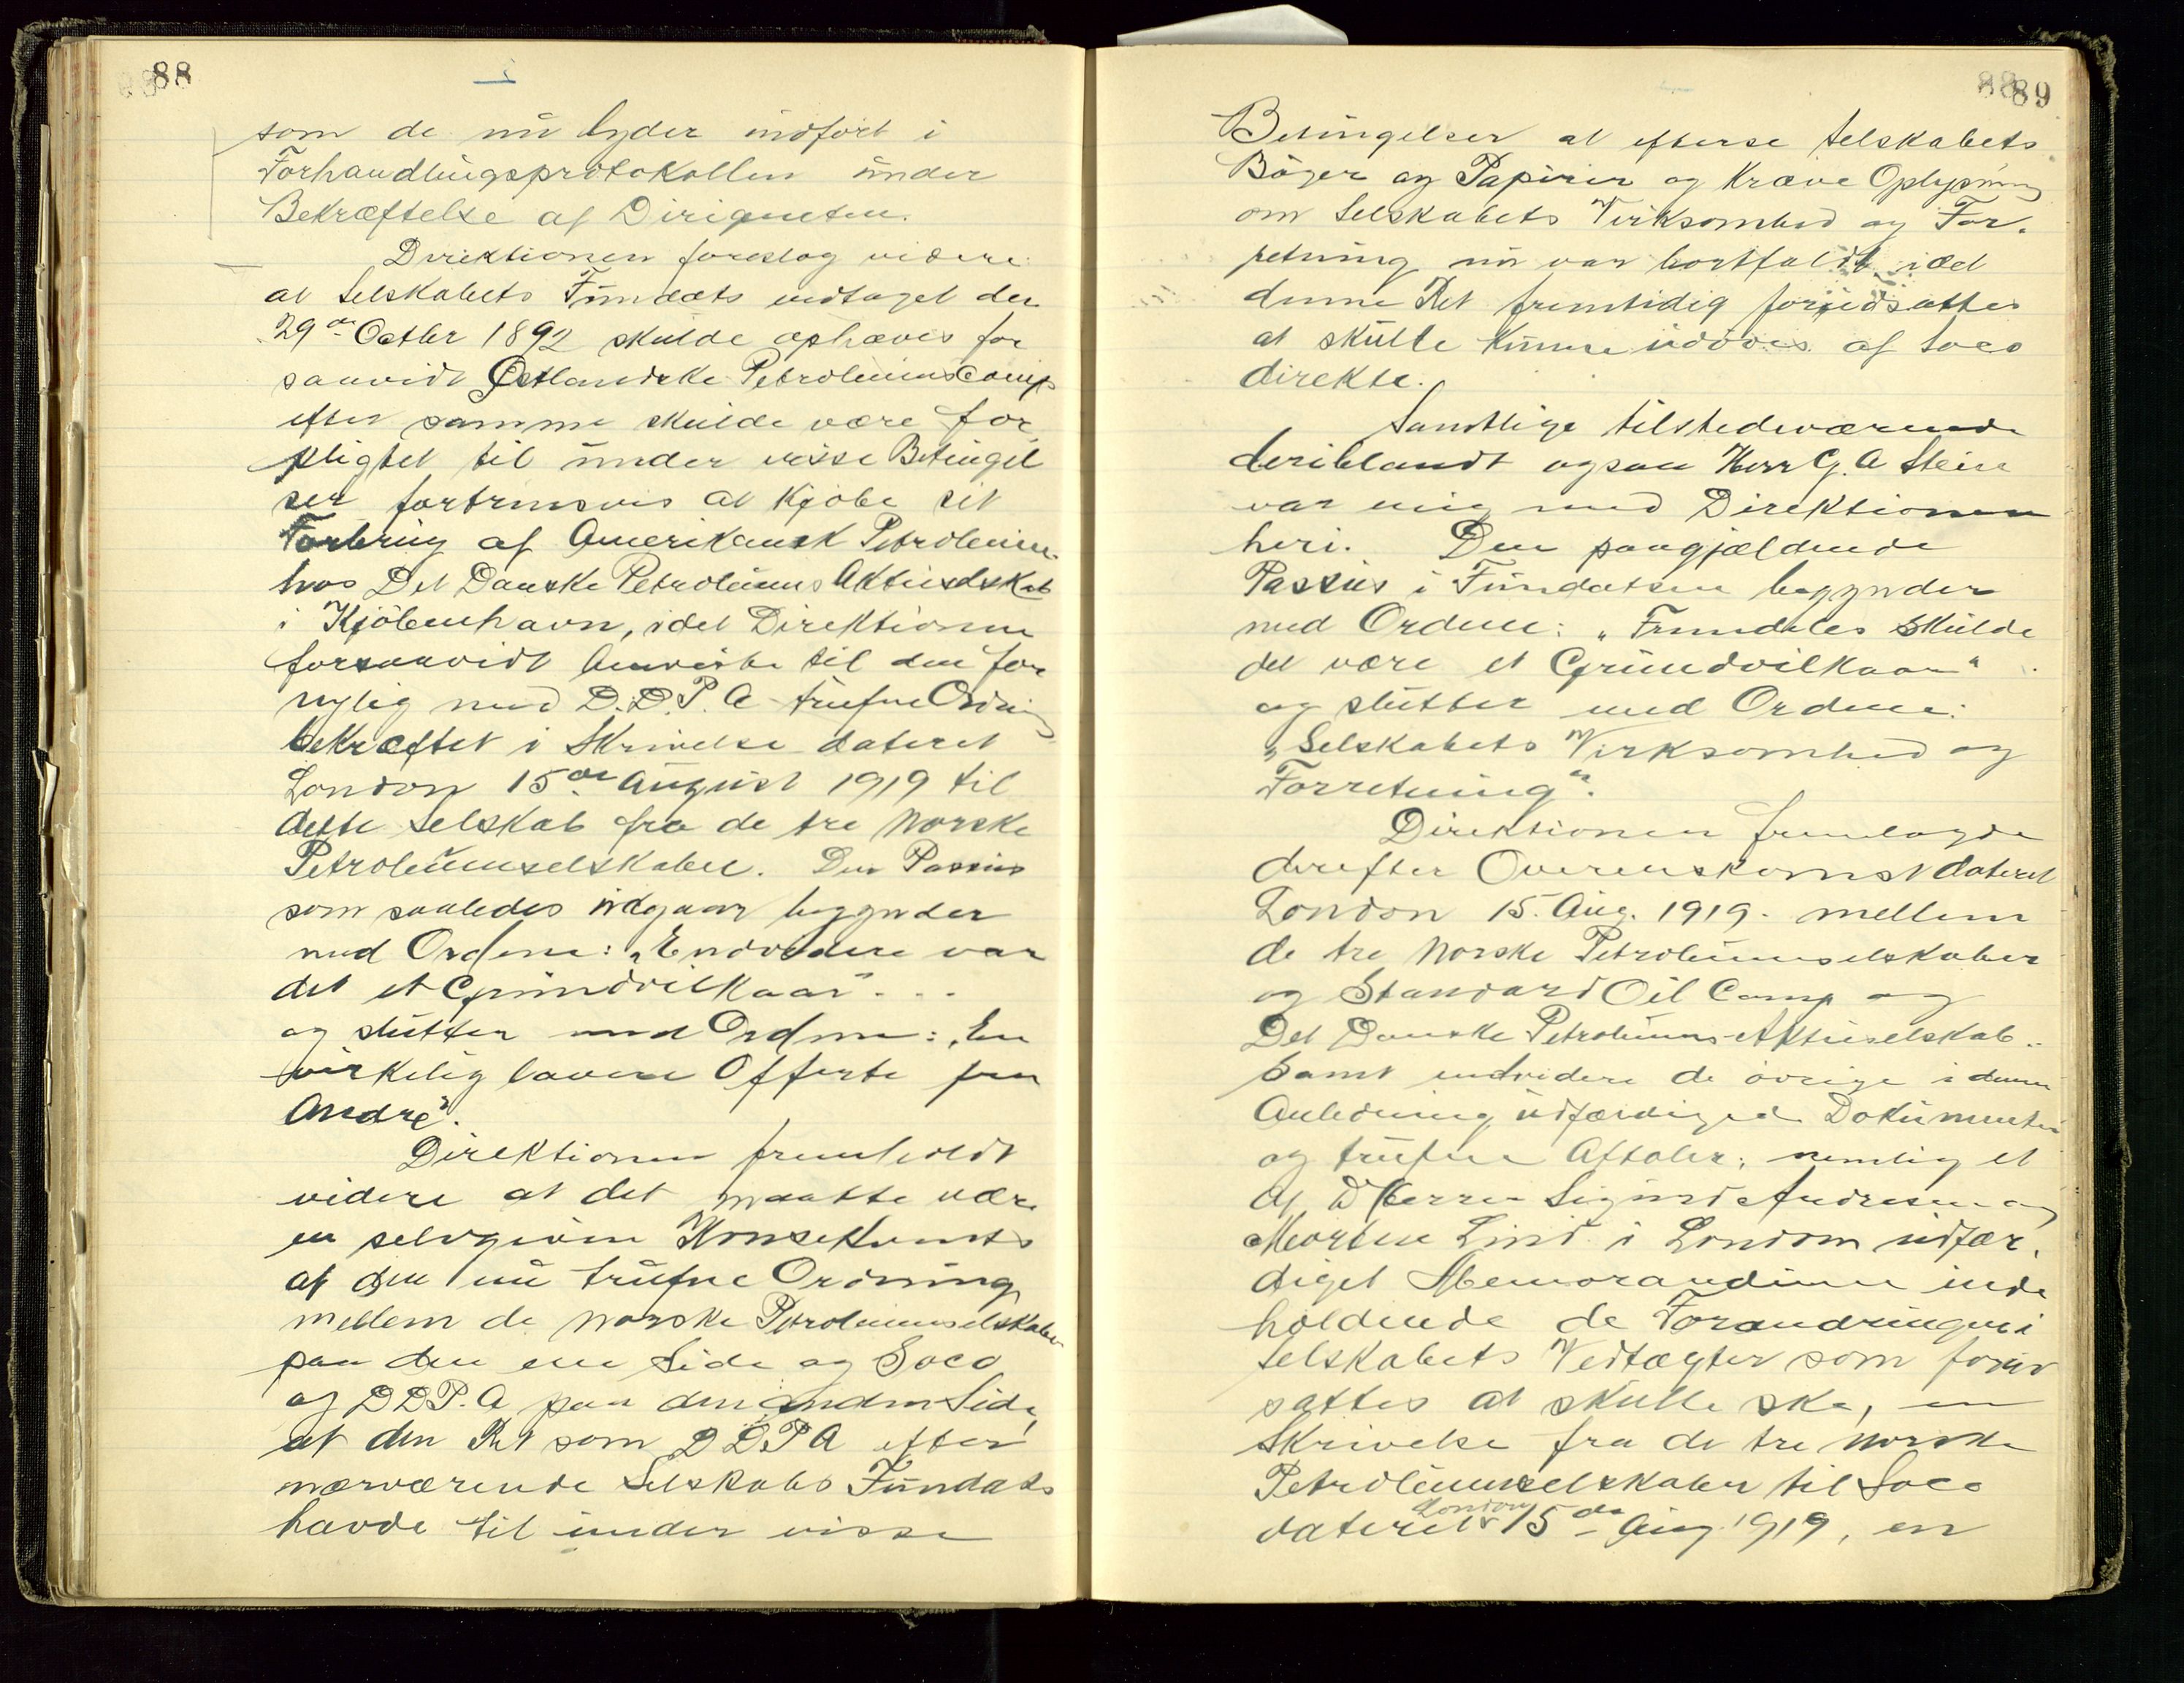 88
som de nu lyder indført i
Forhandlingsprotokollen under
Bekræftelse af Dirigenten.
Direktionen foreslog videre
at Selskabets Fundats vedtaget den
29de Octbr 1892 skulde ophæves for
saavidt Østlandske Petroleumscomp
efter samme skulde være for
pligtet til under visse Betingel
ser fortrinsvis at kjøbe sit
Forbrug af Amerikansk Petroleum
hos Det Danske Petroleums Aktieselskab
i Kjöbenhavn, idet Direktionen
forsaavidt henviste til den for
nylig med D.D.P.A trufne Ordning
bekræftet i Skrivelse dateret
London 15de August 1919 til
dette Selskab fra de tre norske
Petroleumselskaber. Den Passus
som saaledes udgaar begynder
med Ordene: "Endvidere var
det et Grundvilkaar" . . .
og slutter med Ordene: "En
virkelig lavere Offerte fra
Andre".
Direktionen fremholdt
videre at det maatte være
en selvgiven Konsekvents
af den nu trufne Ordning
mellem de norske Petroleumselskaber
paa den ene Side og Soco
og DDP.A paa den anden Side,
at den Ret som DDPA efter
nærværende Selskabs Fundats
havde til under visse
89
Betingelser at efterse Selskabets
Bøger og Papirer og kræve Oplysning
om Selskabets Virksomhed og For-
retning nu var bortfaldt idet
denne Ret fremtidig forudsattes
at skulle kunne udøves af Soco
direkte.
Samtlige tilstedeværende
deriblandt ogsaa Herr G. A Stein
var enig med Direktionen
heri. Den paagjældende
Passus i Fundatsen begynder
med Ordene: "Fremdeles skulde
det være et Grundvilkaar"
og slutter med Ordene:
"Selskabets Virksomhed og
Forretning".
Direktionen fremlagde
derefter Overenskomst dateret
London 15. Aug. 1919. mellem
de tre norske Petroleumselskaber
og Standard Oil Comp og
Det Danske Petroleums-Aktieselskab.
samt endvidere de øvrige i denne
Anledning udfærdiged Dokumenter
og trufne Aftaler; nemlig et
af D'Herrer Sigurd Andresen og
Morten Lind i London udfær.
diget Memorandum inde
holdende de Forandringer i
Selskabets Vedtægter som forud
sattes at skulle ske, en
Skrivelse fra de tre norske
Petroleumselskaber til Soco
dateret London 15de Aug. 1919, en